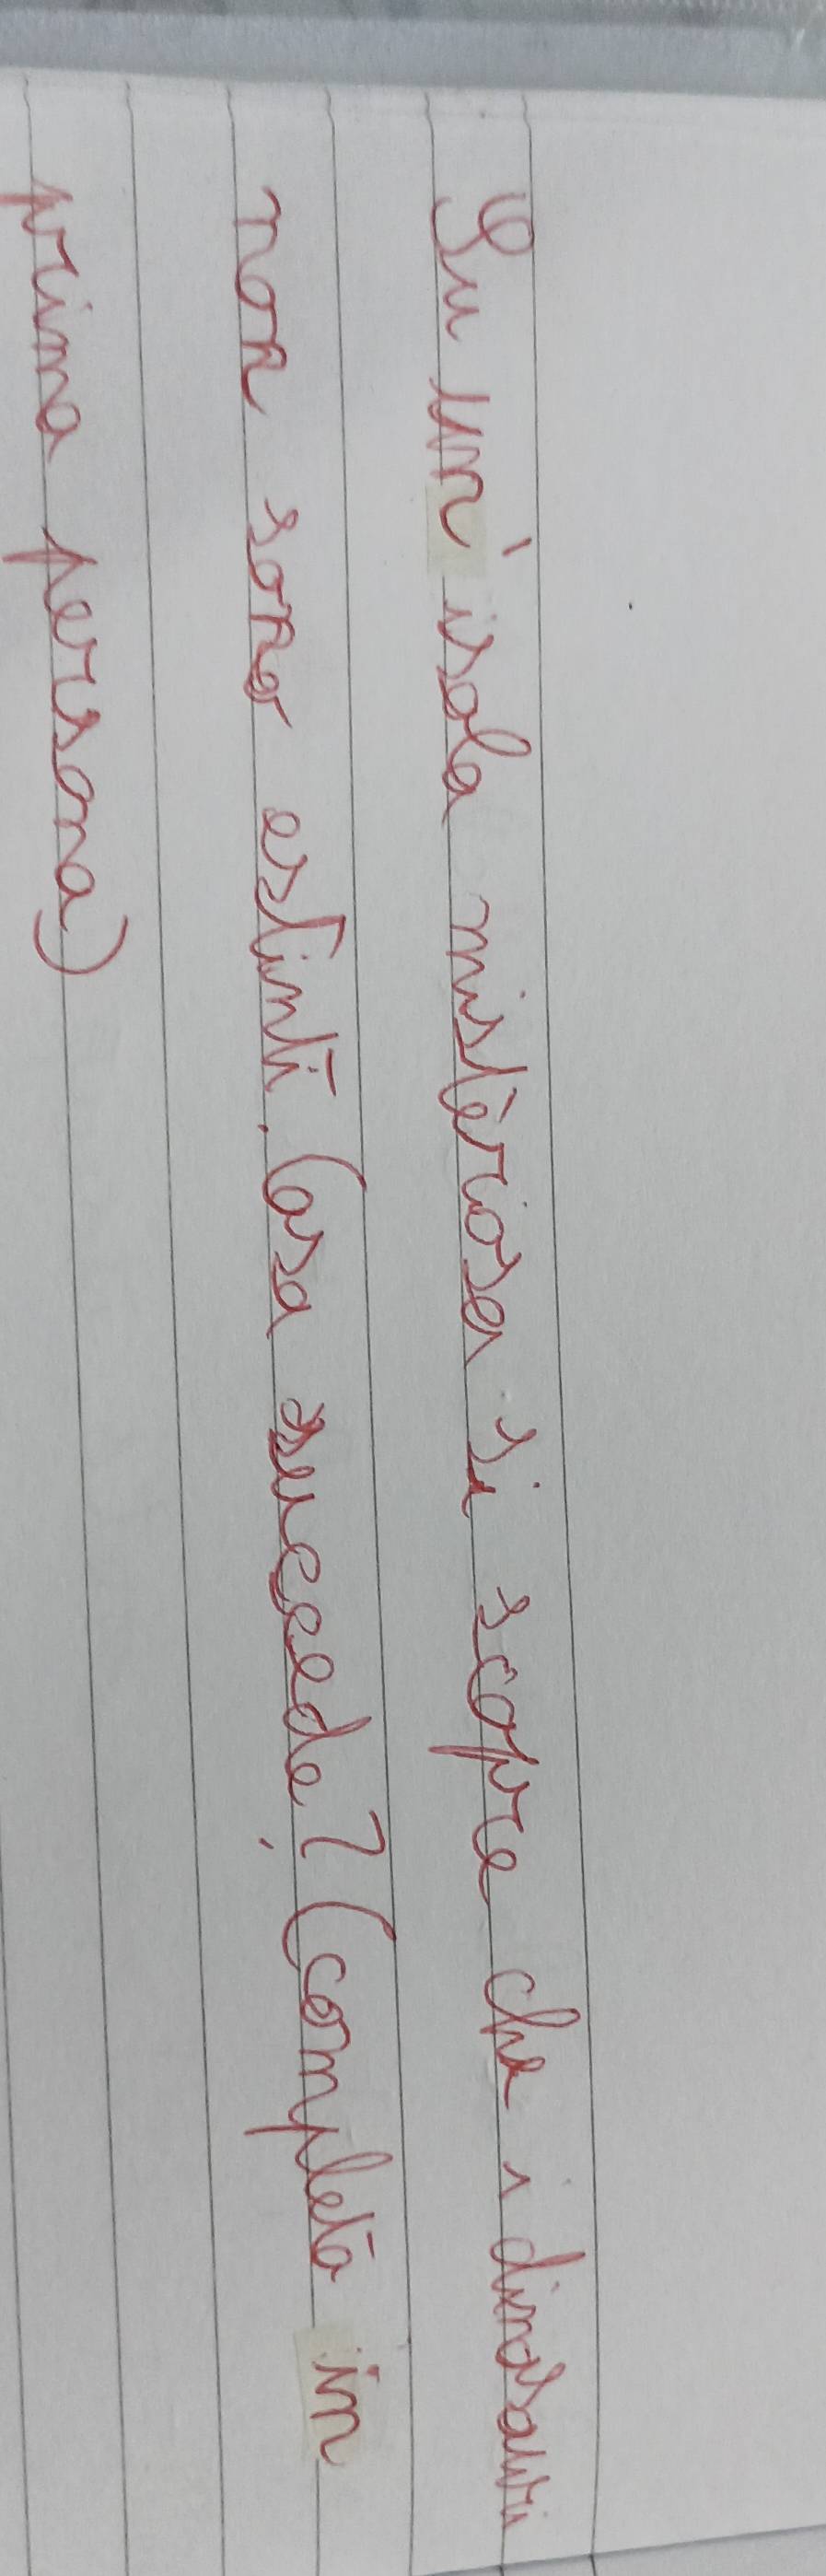 Su un' isola misteriosa si scopre che i dinosauri
non sono estinti. Cosa succede? (completa in
prima persona)